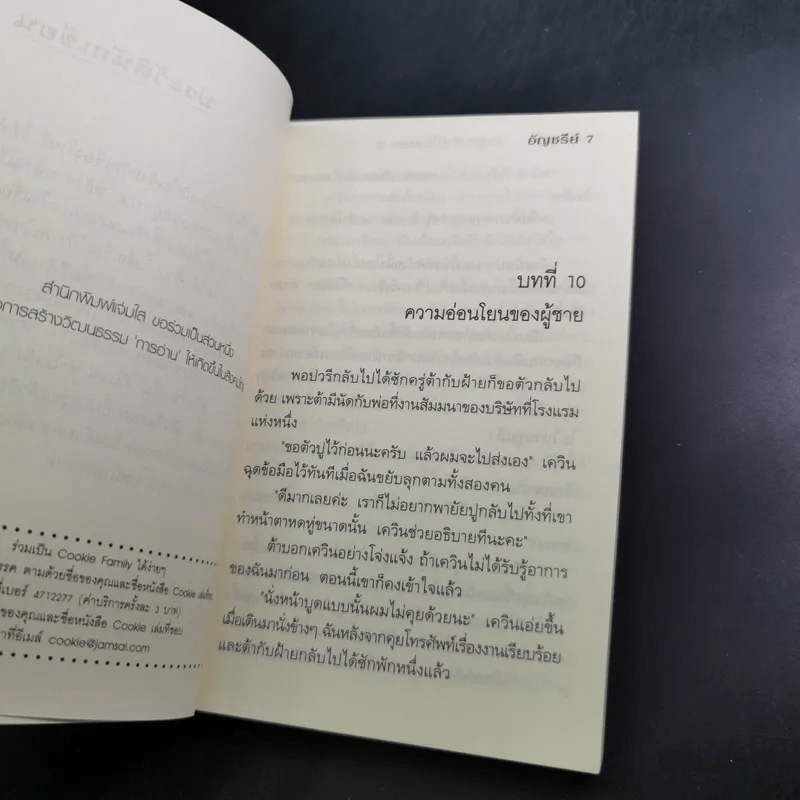 สำนักพิมพ์แจ่มใส ขอร่วมเป็นส่วนหนึ่ง
การสร้างวัฒนธรรม 'การอ่าน' ให้เกิดขึ้นในสังคม
ร่วมเป็น Cookie Family ได้ง่ายๆ
ตามด้วยชื่อของคุณและชื่อหนังสือ Cookie
เบอร์ 4712277 (ค่าบริการครั้งละ 3 บาท)
ของคุณและชื่อหนังสือ Cookie เล่มที่ชอบ
ที่อีเมล์ cookie@jamsai.com
อัญชรีย์ 7
บทที่ 10
ความอ่อนโยนของผู้ชาย
พอปวรีกลับไปได้ซักครู่ต้ากับฝ้ายก็ขอตัวกลับไป
ด้วย เพราะต้ามีนัดกับพ่อที่งานสัมมนาของบริษัทที่โรงแรม
แห่งหนึ่ง
"ขอตัวปูไว้ก่อนนะครับ แล้วผมจะไปส่งเอง" เควิน
ฉุดข้อมือไว้ทันทีเมื่อฉันขยับลุกตามทั้งสองคน
"ดีมากเลยค่ะ เราก็ไม่อยากพายัยปูกลับไปทั้งที่เขา
ทำหน้าตาหดหู่ขนาดนั้น เควินช่วยอธิบายทีนะคะ"
ต้าบอกเควินอย่างโจ่งแจ้ง ถ้าเควินไม่ได้รับรู้อาการ
ของฉันมาก่อน ตอนนี้เขาก็คงเข้าใจแล้ว
"นั่งหน้าบูดแบบนั้นผมไม่คุยด้วยนะ" เควินเอ่ยขึ้น
เมื่อเดินมานั่งข้างๆ ฉันหลังจากคุยโทรศัพท์เรื่องงานเรียบร้อย
และต้ากับฝ้ายกลับไปได้ซักพักหนึ่งแล้ว